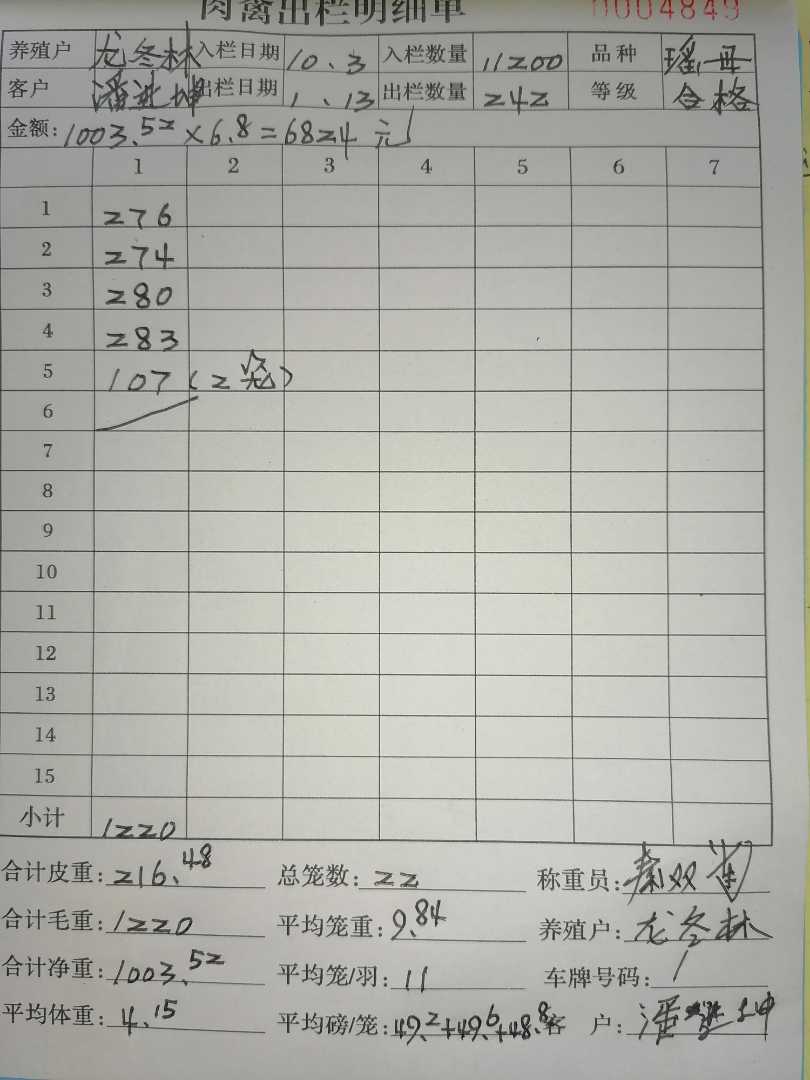 肉禽出栏明细单 0004849
养殖户 龙冬林 入栏日期 10.3 入栏数量 11200 品种 瑶鸡母
客户 潘进坤 出栏日期 1.13 出栏数量 242 等级 合格
金额: 1003.52×6.8=6824元
1 2 3 4 5 6 7
1 276
2 274
3 280
4 283
5 107(2笼)
6
7
8
9
10
11
12
13
14
15
小计 1220
合计皮重: 216.48 总笼数: 22 称重员: 双
合计毛重: 1220 平均笼重: 9.84 养殖户: 龙冬林
合计净重: 1003.52 平均笼/羽: 11 车牌号码: /
平均体重: 4.15 平均磅/笼: 49.2+49.6+48.8 客 户: 潘进坤